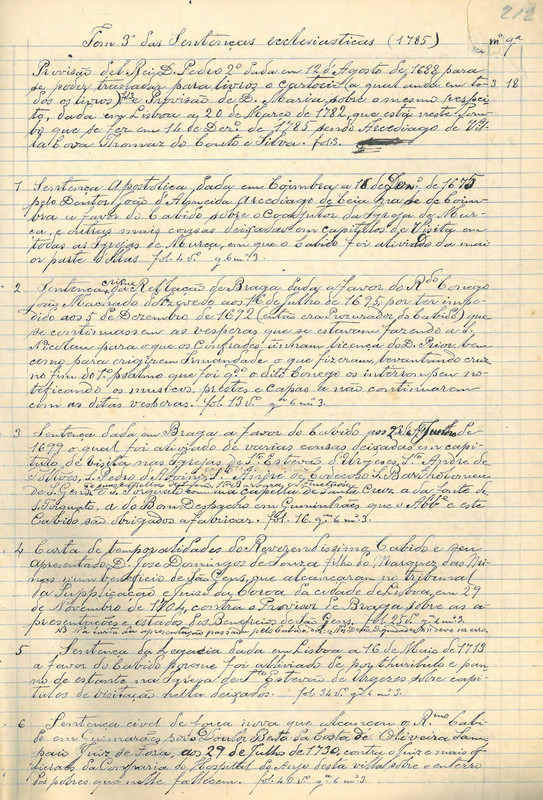 212
Tom 3º das Sentenças ecclesiasticas (1785) mº gª
Provisão del Rei D. Pedro 2º dada em 12 d'Agosto de 1688 para
se poder trasladar para livros o Cartorio (a qual anda em to- 3 18
dos os livros) e Provisão de D. Maria sobre o mesmo respei-
to, dada em Lisboa a 20 de Março de 1782, que está neste Tom
que se fez em 14 de Dezº de 1785 sendo Arcediago de Vil-
la Cova Thomaz do Couto e Silva. fol. 3.
1 Sentença Apostolica dada em Coimbra a 16 de de 1675
pelo Doutor João de Almeida Arcediago de Ceia de Coim-
bra a favor do Cabido sobre o Coadjutor da Igreja de Mur-
ça, e outras mais cousas deixadas em Capitulos de Visita em
todas as Igrejas de Murça, em que o Cabido foi aliviado da mai-
or parte dellas. fol. 4 vº g. 6 mº 3.
2 Sentença crime da Rellação de Braga dada a favor do Rdo Conego
João Machado d'Azevedo aos 16 de Julho de 1695, por ter impe-
dido aos 5 de Dezembro de 1672 (então era Procurador do Cabido) que
se continuassem as vesperas que se estavam fazendo a S.
Nicolau para o que os Confrades tinham licença do D. Prior, bem
como para erigirem Irmandade o que fizeram, levantando cruz
no fim do 1º psalmo que foi qdo o dito Conego os interrompeu no-
teficando os musicos, prestes e Capas a não continuarem
com as ditas vesperas. fol. 13 vº gª 6 mº 3.
3 Sentença dada em Braga a favor do Cabido aos 23 de Junho de
1699 o qual foi aliviado de varias cousas deixadas em capi-
tulo de visita nas Igrejas de Sto Estevão d'Urgezes, Sto André de
S. Pedro d'Azurey, S. André de S. Bartholomeu
de S. Gens, e S. Torquato com sua capella de Santa Cruz, a da fonte de
S. Torquato, a do Bom Despacho em Guminhães que o Abbe e este
Cabido são obrigados a fabricar. fol. 16. gª 6 mº 3.
4 Carta de temporalidades do Reverendissimo Cabido e seu
Apresentado D. José Domingos de Souza filho do Marquez das Mi-
nas num beneficio de São Gens, que alcançaram no tribunal
da Supplicação e Juizo da Coroa da cidade de Lisboa, em 29
de Novembro de 1704, contra o Provisor de Braga sobre as a-
presentações e estados dos Beneficios de São Gens. fol. 25 vº g. 6 mº 3.
NB Na carta da apresentação passada pelo Cabido
5 Sentença da Legacia dada em Lisboa a 16 de Maio de 1713
a favor do Cabido porque foi aliviado de pôr thuribulo e pan-
no de estante na Igreja de Sto Estevão de Urgezes sobre capi-
tulos de visitação nella deixados. fol. 34 vº gª 6 mº 3.
6 Sentença civel de força nova que alcançou o Rmo Cabi-
do em Guimarães, pelo Doutor Bento da Costa de Oliveira Sam-
paio Juiz de Fóra, aos 29 de Julho de 1730, contra o Juiz e mais of-
ficiaes da Confraria do Hospital do Anjo desta villa sobre o enterro
dos pobres que nelle fallessem. fol. 46 vº gª 6 mº 3.